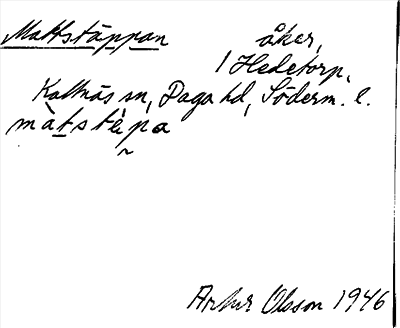 Mattstäppan åker,
/ Hedetorp,
Kattnäs sn, Daga hd, Söderm. l.
màtstèpa
Arthur Olsson 1946